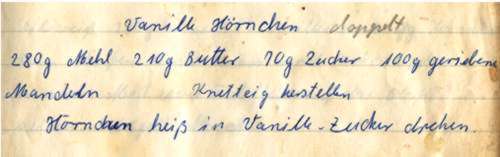 Vanille Hörnchen doppelt
280g Mehl 210g Butter 70g Zucker 100g geriebene
Mandeln Knetteig herstellen
Hörnchen heiß in Vanille-Zucker drehen.